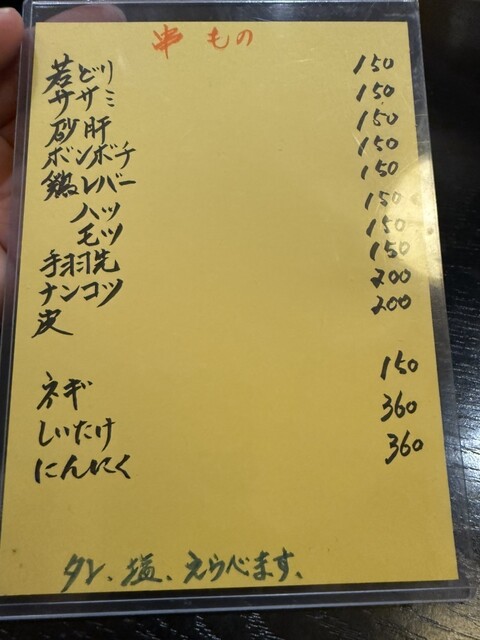 串もの
若どり 150
ササミ 150
砂肝 150
ボンボチ 150
鶏レバー 150
ハツ 150
モツ 150
手羽先 150
ナンコツ 200
皮 200
ネギ 150
しいたけ 360
にんにく 360
タレ、塩、えらべます。